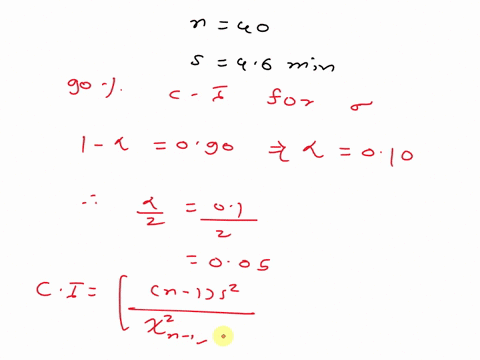 n = 40
s = 4.6 min
90 %. C - I for σ
1 - α = 0.90 ⇒ α = 0.10
∴ α/2 = 0.1/2
= 0.05
C.I = [ (n-1)s² / χ²n-1,